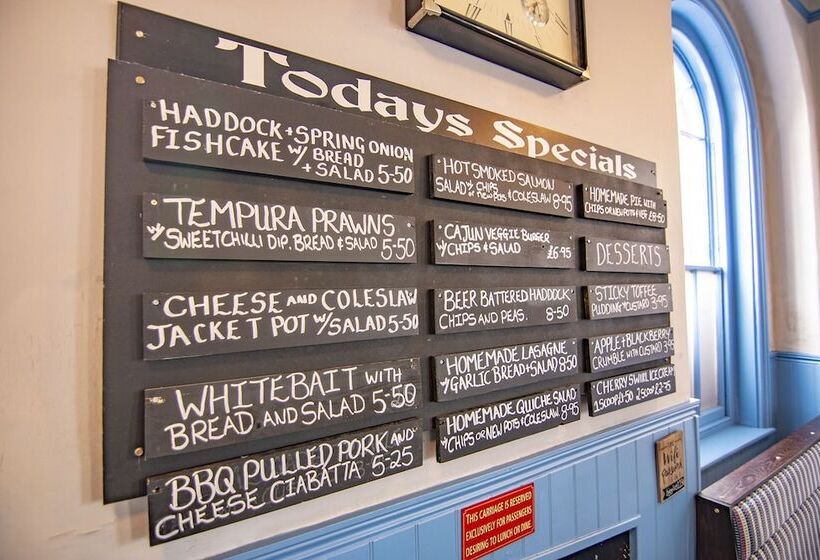 Todays Specials
HADDOCK + SPRING ONION
FISHCAKE W/ BREAD
+ SALAD 5-50
TEMPURA PRAWNS
W/ SWEETCHILLI DIP. BREAD & SALAD 5-50
CHEESE AND COLESLAW
JACKET POT W/ SALAD 5-50
WHITEBAIT WITH
BREAD AND SALAD 5-50
BBQ PULLED PORK AND
CHEESE CIABATTA 5-25
HOT SMOKED SALMON
SALAD W/ CHIPS
OR NEW POTS & COLESLAW 8-95
CAJUN VEGGIE BURGER
W/ CHIPS & SALAD £6-95
BEER BATTERED HADDOCK
CHIPS AND PEAS. 8-50
HOMEMADE LASAGNE
W/ GARLIC BREAD + SALAD 8-50
HOMEMADE QUICHE SALAD
W/ CHIPS OR NEW POTS & COLESLAW 8-95
HOMEMADE PIE WITH
CHIPS OR NEW POTS & VEG £8-50
DESSERTS
STICKY TOFFEE
PUDDING W/ CUSTARD 3-95
APPLE + BLACKBERRY
CRUMBLE WITH CUSTARD 3-95
CHERRY SWIRL ICE CREAM
1 SCOOP £1-50 2 SCOOP £2-95
THIS CARRIAGE IS RESERVED
EXCLUSIVELY FOR PASSENGERS
DESIRING TO LUNCH OR DINE.
Wifi